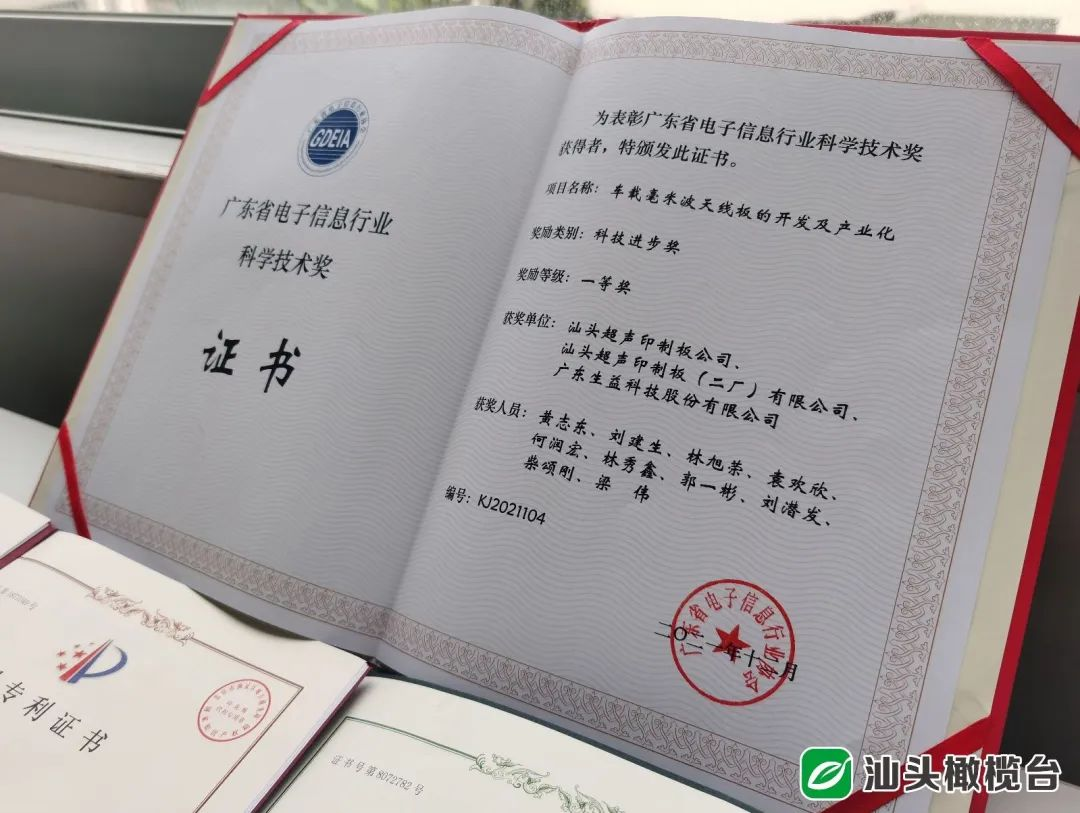 GDEIA
广东省电子信息行业
科学技术奖
证书
为表彰广东省电子信息行业科学技术奖
获得者，特颁发此证书。
项目名称：车载毫米波天线板的开发及产业化
奖励类别：科技进步奖
奖励等级：一等奖
获奖单位：汕头超声印制板公司、
汕头超声印制板（二厂）有限公司、
广东生益科技股份有限公司
获奖人员：黄志东、刘建生、林旭荣、袁欢欣、
何润宏、林秀鑫、郭一彬、刘潜发、
柴颂刚、梁 伟
编号：KJ2021104
广东省电子信息行业协会
专利证书
证书号第8072782号
汕头橄榄台